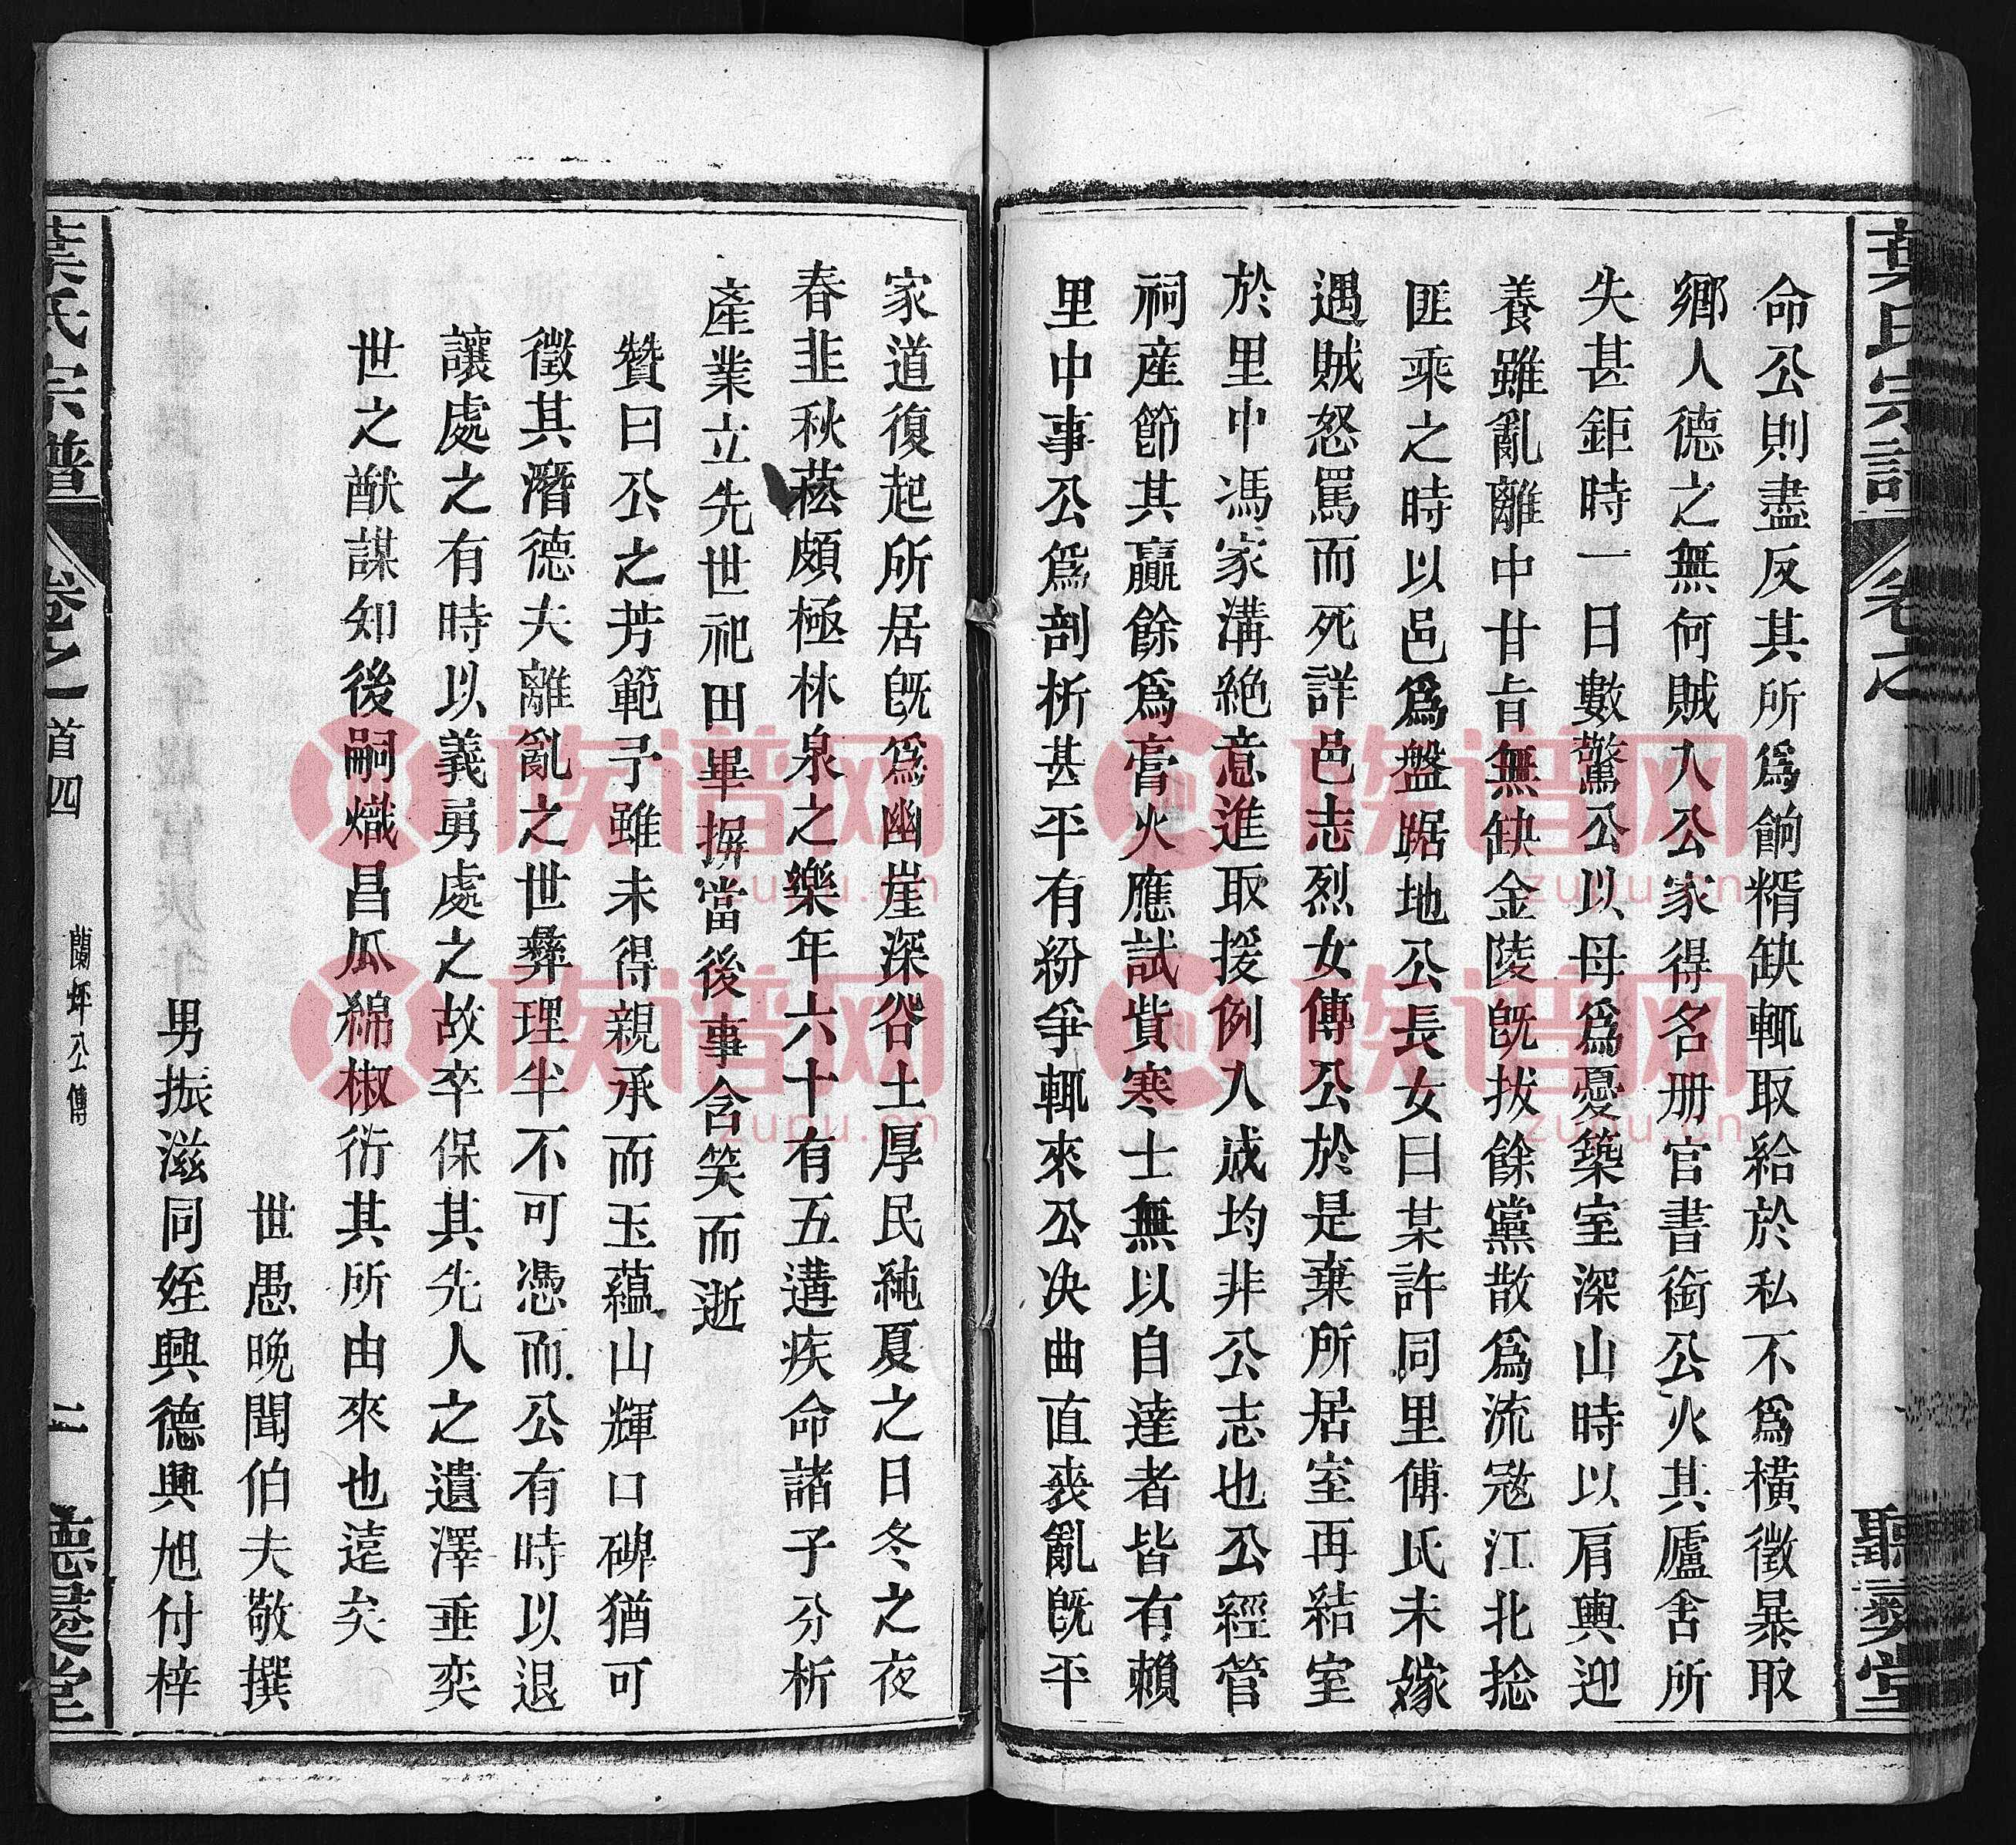 葉氏宗譜
卷之
聽彝堂
命公則盡反其所爲餉糈缺輒取給於私不爲橫徵暴取
鄉人德之無何賊入公家得名册官書銜公火其廬舍所
失甚鉅時一日數驚公以母爲憂築室深山時以肩輿迎
養雖亂離中甘旨無缺金陵旣拔餘黨散爲流寇江北捻
匪乘之時以邑爲盤踞地公長女曰某許同里傅氏未嫁
遇賊怒罵而死詳邑志烈女傳公於是棄所居室再結室
於里中馮家溝絶意進取援例入成均非公志也公經管
祠産節其贏餘爲膏火應試貲寒士無以自達者皆有賴
里中事公爲剖析甚平有紛爭輒來公决曲直喪亂旣平
家道復起所居旣爲幽崖深谷土厚民純夏之日冬之夜
春韭秋菘頗極林泉之樂年六十有五遘疾命諸子分析
產業立先世祀田畢摒當後事含笑而逝
贊曰公之芳範予雖未得親承而玉藴山輝口碑猶可
徵其潛德夫離亂之世彝理半不可憑而公有時以退
讓處之有時以義勇處之故卒保其先人之遺澤垂奕
世之猷謀知後嗣熾昌瓜綿椒衍其所由來也遠矣
世愚晚聞伯夫敬撰
男振滋同姪興德興旭付梓
葉氏宗譜
卷之
首四
蘭坪公傳
二
聽彝堂
族谱网
zupu.cn
族谱网
zupu.cn
族谱网
zupu.cn
族谱网
zupu.cn